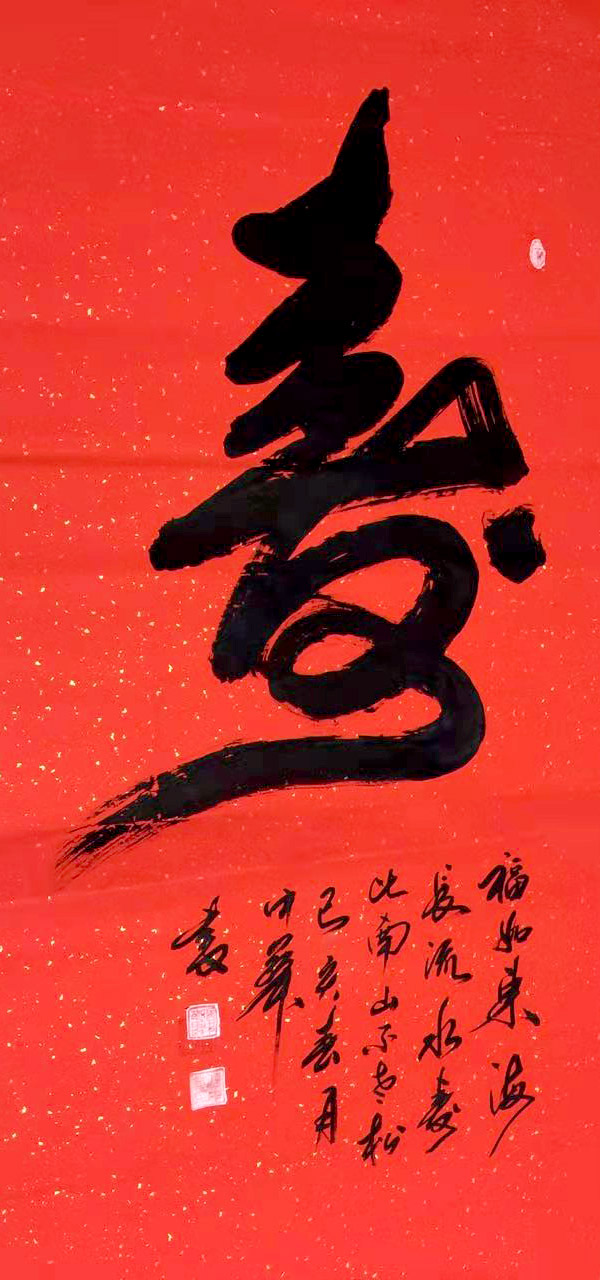 壽
福如東海
長流水壽
比南山不老松
己亥春月
中華